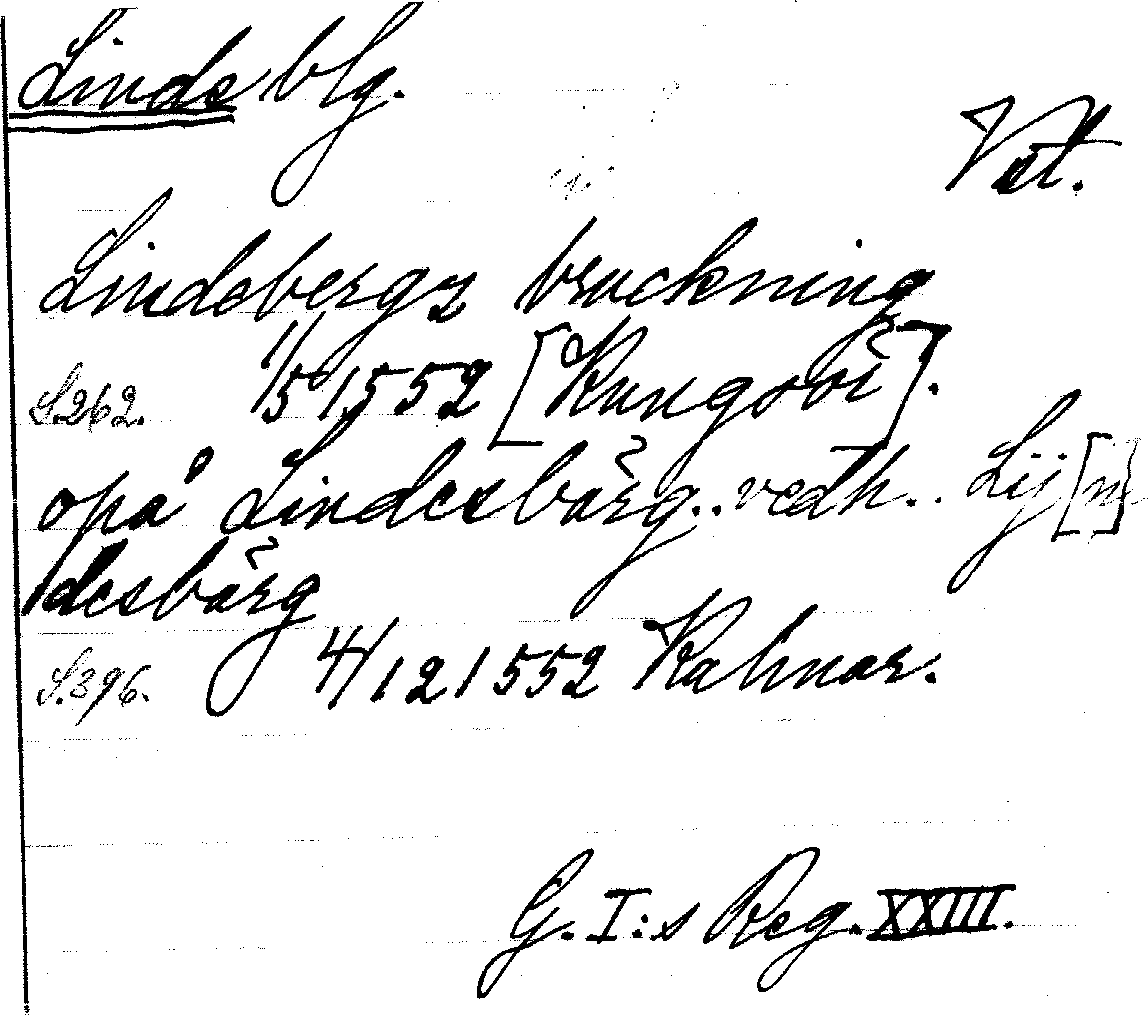 Linde blg.
Vstm.
Lindebergz bruckning
S.262. 1/5 1552 [Kungsör].
opå Lindesbärg.. vedh.. Lij[n]
desbärg
S.396. 4/12 1552 Kalmar.
G. I:s Reg. XXIII.